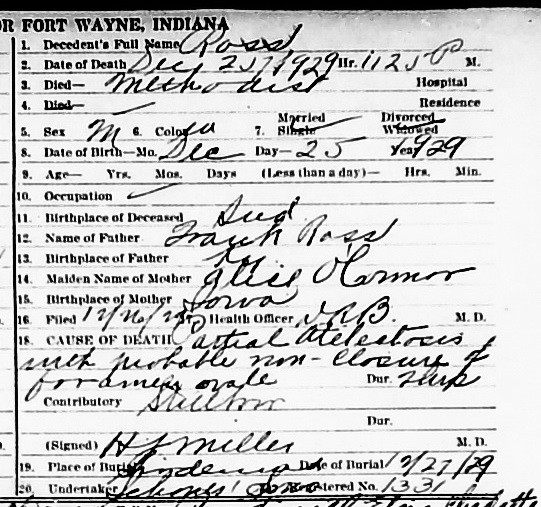 OR FORT WAYNE, INDIANA
1. Decedent's Full Name Ross
2. Date of Death Dec 25, 1929 Hr. 1125 P M.
3. Died— Methodist Hospital
4. Died— Residence
5. Sex M 6. Color W 7. Married Single Divorced Widowed
8. Date of Birth—Mo. Dec Day— 25 Year 1929
9. Age— Yrs. Mos. Days (Less than a day)— Hrs. Min.
10. Occupation
11. Birthplace of Deceased Ind
12. Name of Father Frank Ross
13. Birthplace of Father
14. Maiden Name of Mother Alice O'Connor
15. Birthplace of Mother Iowa
16. Filed 12/26/29 17. Health Officer M. D.
18. CAUSE OF DEATH Partial Atelectasis
with probable non-closure of
foramen ovale Dur. 2 hrs
Contributory Stillborn
Dur.
(Signed) H J Miller M. D.
19. Place of Burial Lindenwood Date of Burial 12/27/29
20. Undertaker Schones' Sons Registered No. 1331